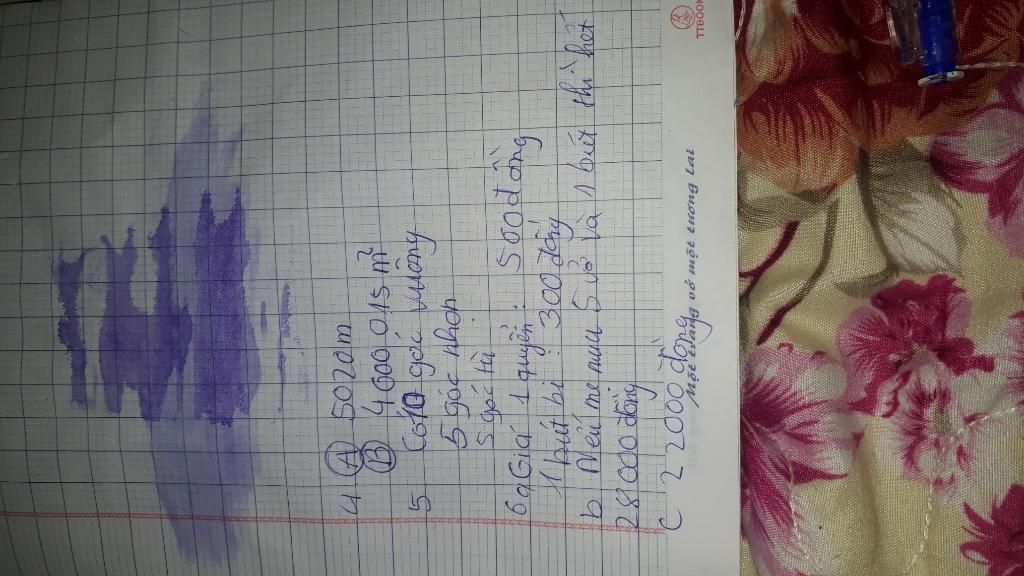 4 Ⓐ 502dm
Ⓑ 4600 015 m²
5 Có 10 góc vuông
5 góc nhọn
5 góc tù
6 a, Giá 1 quyển : 500 đồng
1 bút bi : 300 đồng
b Nếu mẹ mua 5 vở và 1 bút thì hết
28000 đồng
c 22000 đồng
TTBOOK